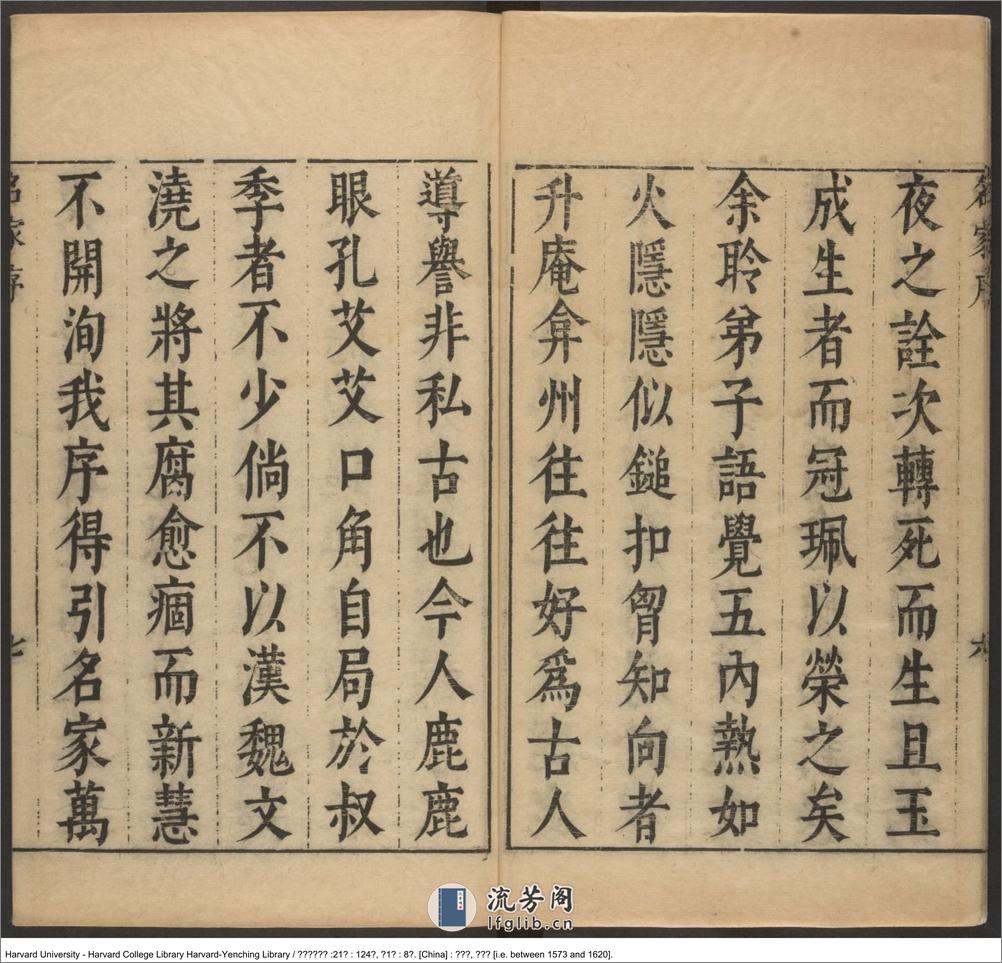 夜之詮次轉死而生且玉
成生者而冠珮以榮之矣
余聆弟子語覺五內熱如
火隱隱似鎚扣胷知向者
升庵弇州往往好爲古人
導譽非私古也今人鹿鹿
眼孔艾艾口角自局於叔
季者不少倘不以漢魏文
澆之將其腐愈痼而新慧
不開洵我序得引名家萬
名家序
七
流芳阁
lfglib.cn
Harvard University - Harvard College Library Harvard-Yenching Library / ?????? :21? : 124?, ?1? : 8?. [China] : ???, ??? [i.e. between 1573 and 1620].